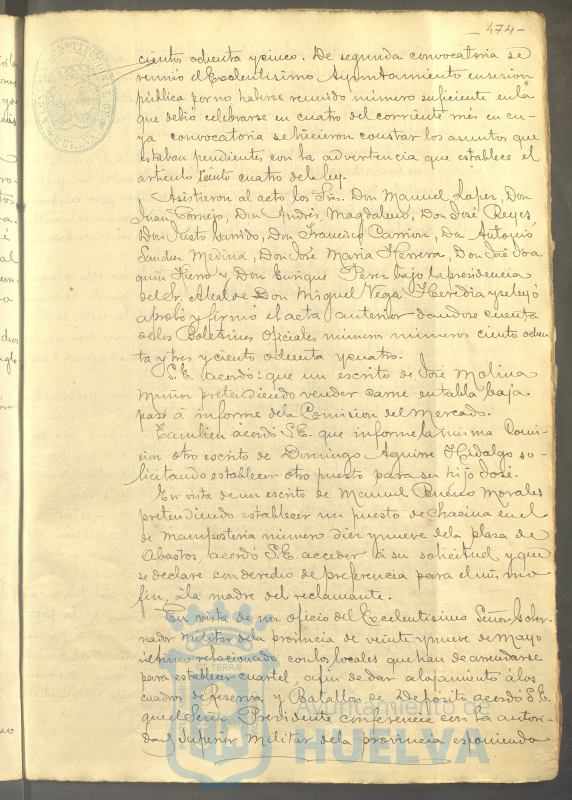 - 474 -
cientos ochenta y cinco. De segunda convocatoria se
reunió el Excelentisimo Ayuntamiento en sesion
pública por no haberse reunido número suficiente en la
que debió celebrarse en cuatro del corriente mes en cu-
ya convocatoria se hicieron constar los asuntos que
estaban pendientes con la advertencia que establece el
articulo ciento cuatro de la ley.
Asistieron al acto los Srs. Don Manuel Lopez, Don
Juan Cornejo, Don Andrés Magdaleno, Don José Reyes
Don Justo Garrido, Don Francisco Carrion, Don Antonio
Sanchez Medina, Don José Maria Herrera, Don José Joa
quin Hierro y Don Enrique Perez bajo la presidencia
del Sr. Alcalde Don Miguel Vega Heredia y se leyó
aprobó y firmó el acta anterior dandose cuenta
de los Boletines Oficiales número números ciento ochen
ta y tres y ciento ochenta y cuatro.
S.E. acordó: que un escrito de José Molina
pretendiendo vender carne en tabla baja
pase á informe de la Comision del Mercado.
Tambien acordó S.E. que informe la misma Comi-
sion otro escrito de Domingo Aguirre Hidalgo so-
licitando establecer otro puesto para su hijo José.
En vista de un escrito de Manuel Bueno Morales
pretendiendo establecer un puesto de chacina en el
de mamposteria número diez y nueve de la plaza de
Abastos, acordó S.E. acceder á su solicitud y que
se declare con derecho de preferencia para el mismo
fin, á la madre del reclamante.
En vista de un oficio del Excelentisimo Señor Gober-
nador Militar de la provincia de veinte y nueve de Mayo
último relacionado con los locales que han de arrendarse
para establecer cuartel, á fin de dar alojamiento á los
cuadros de Reserva y Batallon de Depósito acordó S.E.
que el Señor Presidente conferencie con la autori-
dad Superior Militar de la provincia esponiendo
Ayuntamiento de
HUELVA